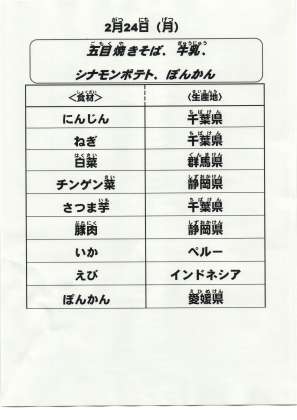 2月24日（月）
五目焼きそば、牛乳、
シナモンポテト、ぽんかん
＜食材＞ ＜生産地＞
にんじん 千葉県
ねぎ 千葉県
白菜 群馬県
チンゲン菜 静岡県
さつま芋 千葉県
豚肉 静岡県
いか ペルー
えび インドネシア
ぽんかん 愛媛県